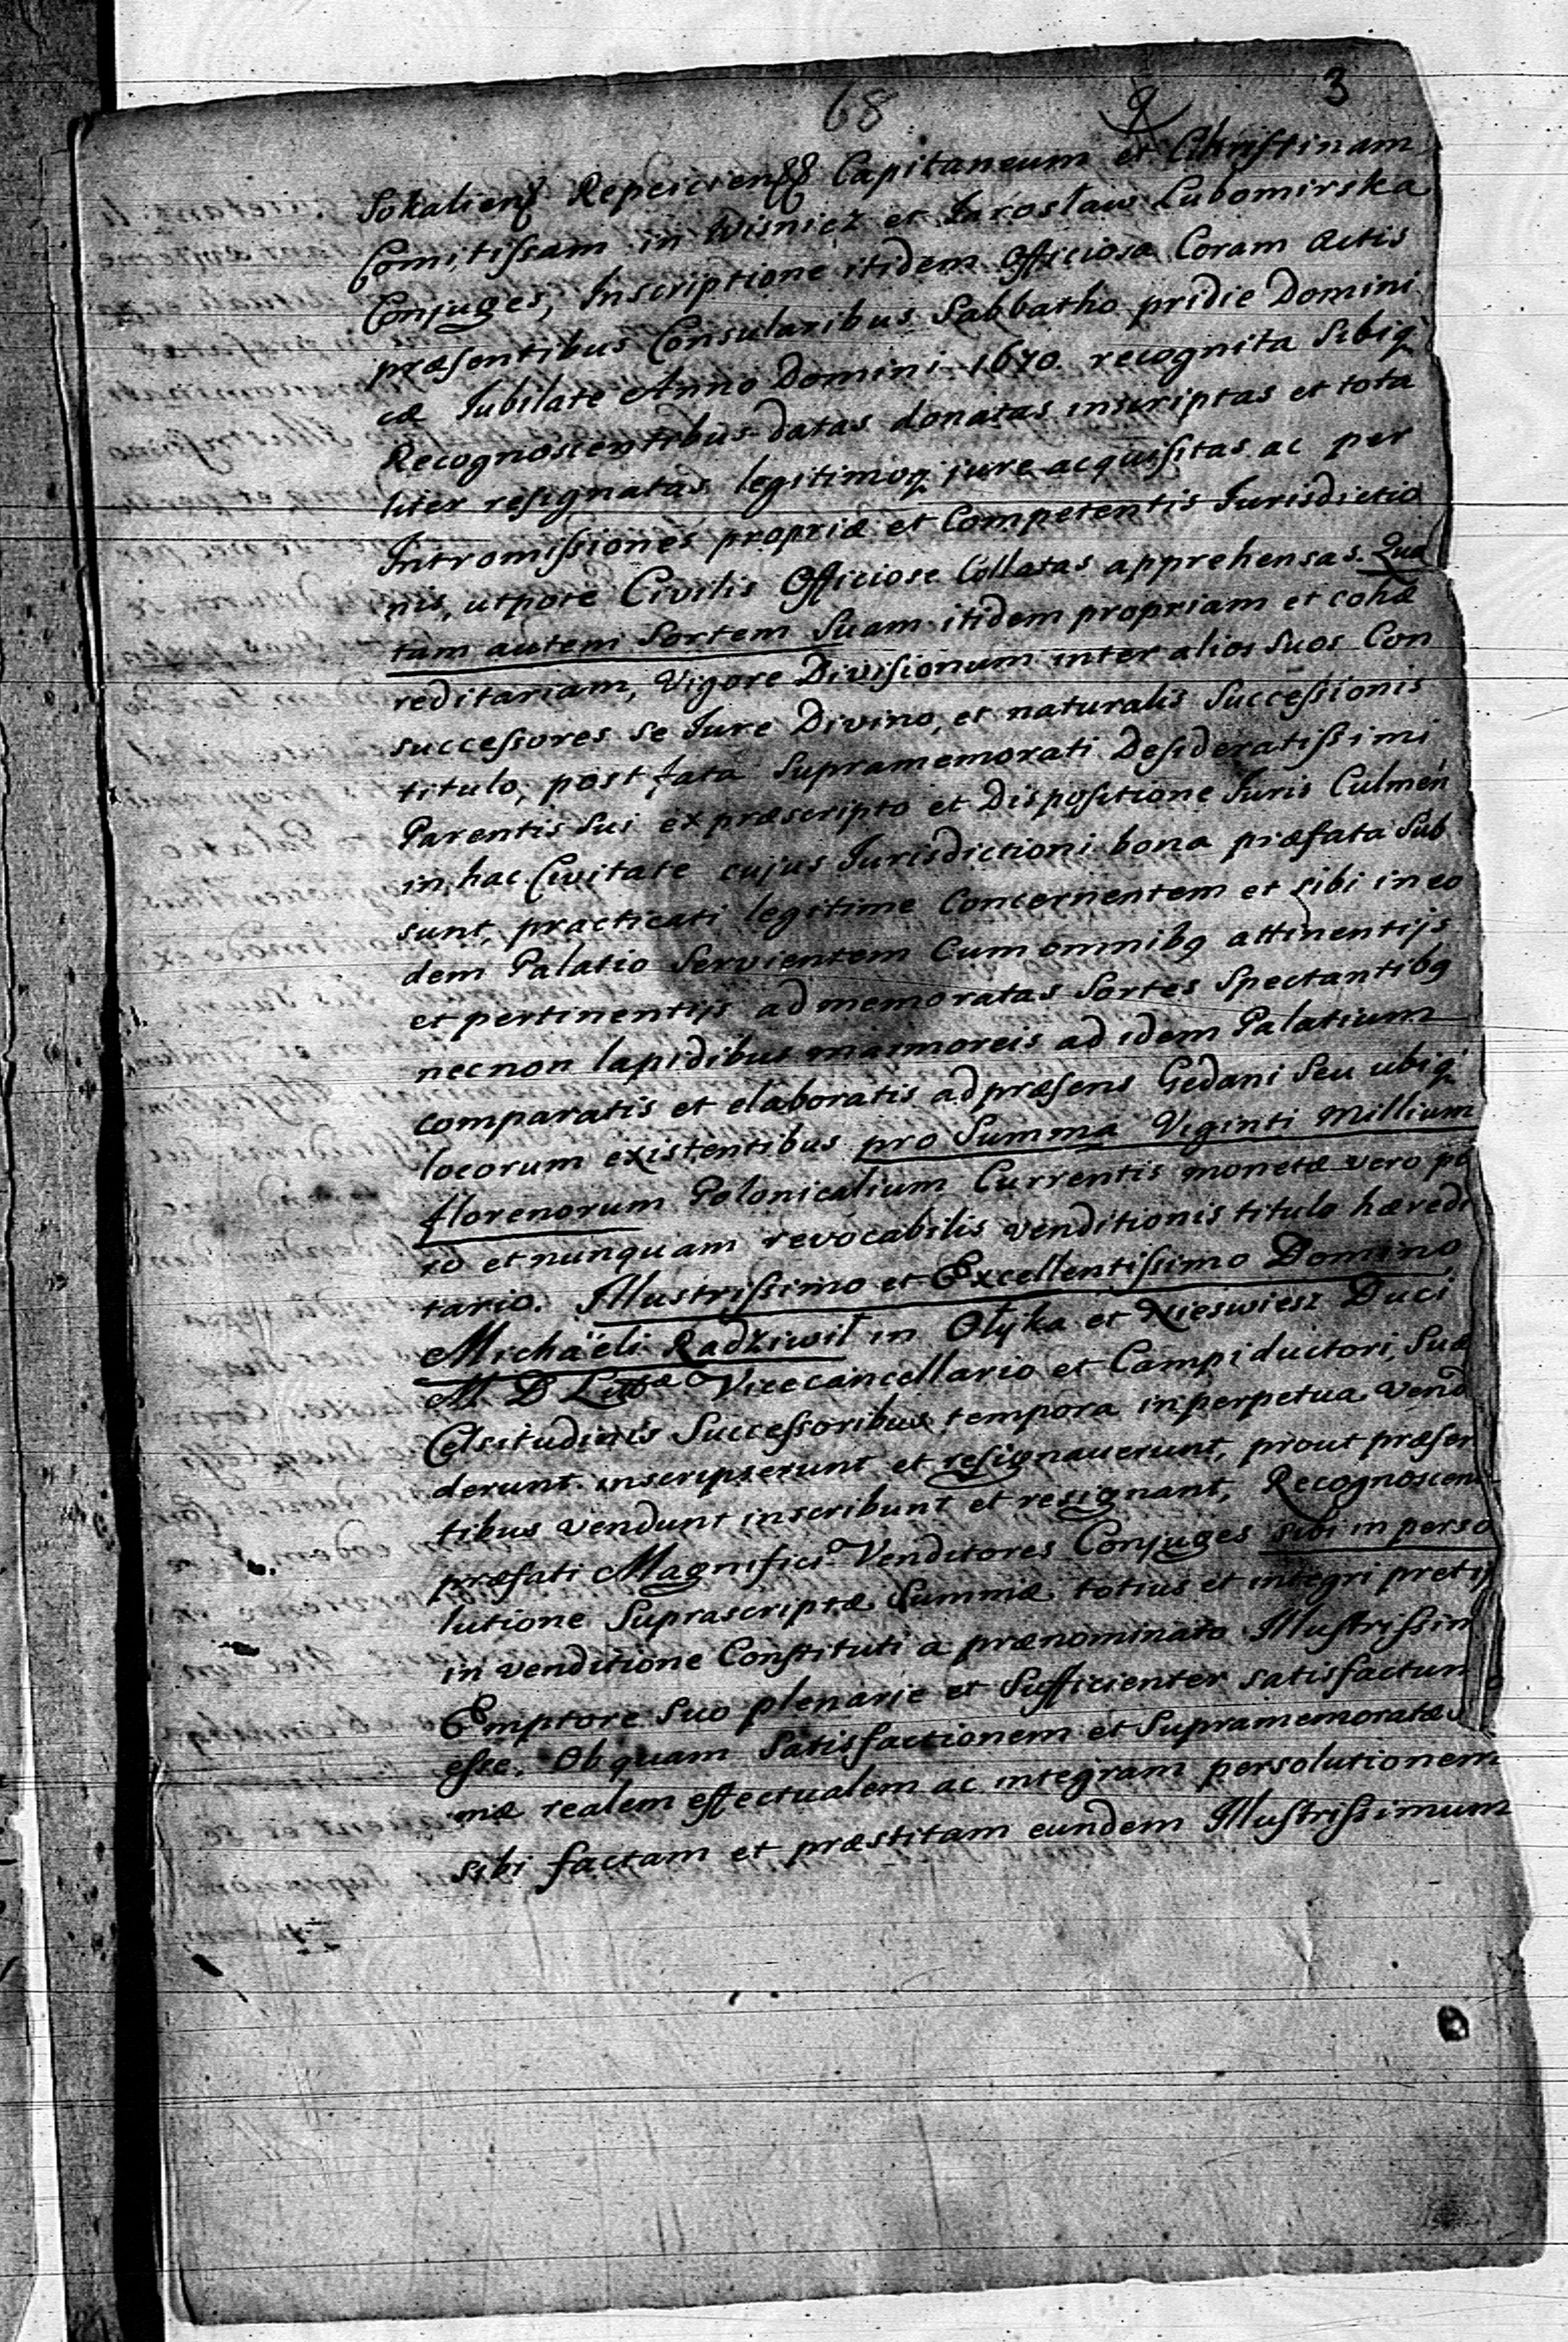 68 3
Sokaliens Repeicienss Capitaneum et Christinam
Comitissam in Wisnicz et Jaroslaw Lubomirska
Conjuges, Inscriptione itidem Officiosa Coram Actis
præsentibus Consularibus Sabbatho pridie Domini
cæ Jubilate Anno Domini 1670. recognita Sibiq
Recognoscentibus datas donatas inscriptas et tota
liter resignatas legitimoq jure acquisitas ac per
Intromissiones propriæ et Competentis Jurisdictio
nis, utpote Civilis Officiose Collatas apprehensas. Qua
tam autem Sortem Suam itidem propriam et cohæ
reditariam, Vigore Divisionum inter alios Suos Con
successores se Jure Divino, et naturalis Successionis
titulo, post fata Supramemorati Desideratissimi
Parentis Sui ex præscripto et Dispositione Juris Culmen
in hac Civitate cujus Jurisdictioni bona præfata Sub
sunt, practicati legitime Concernentem et sibi in eo
dem Palatio Servientem Cum omnibq attinentijs
et pertinentijs ad memoratas Sortes Spectantibq
necnon lapidibus marmoreis ad idem Palatium
comparatis et elaboratis ad præsens Gedani Seu ubiq
locorum existentibus pro Summa Viginti Millium
florenorum Polonicalium Currentis monetæ vero pe
ro et nunquam revocabilis venditionis titulo hæredi
tario. Illustrissimo et Excellentissimo Domino
Michaëli Radziwił in Ołyka et Nieswiesz Duci
M D Littæ Vicecancellario et Campiductori, Suæ
Celsitudinis Successoribus tempora in perpetua Vend
derunt inscripserunt et resignauerunt, prout præsen
tibus vendunt inscribunt et resignant, Recognoscen
præfati Magnifici Venditores Conjuges sibi in perso
lutione Suprascriptæ Summæ totius et integri pretij
in venditione Constituti a prænominato Illustrissim
Emptore Suo plenarie et Sufficienter satisfactum
esse. Ob quam Satisfactionem et Supramemoratæ
mæ realem effectualem ac integram persolutionem
sibi factam et præstitam eundem Illustrissimum